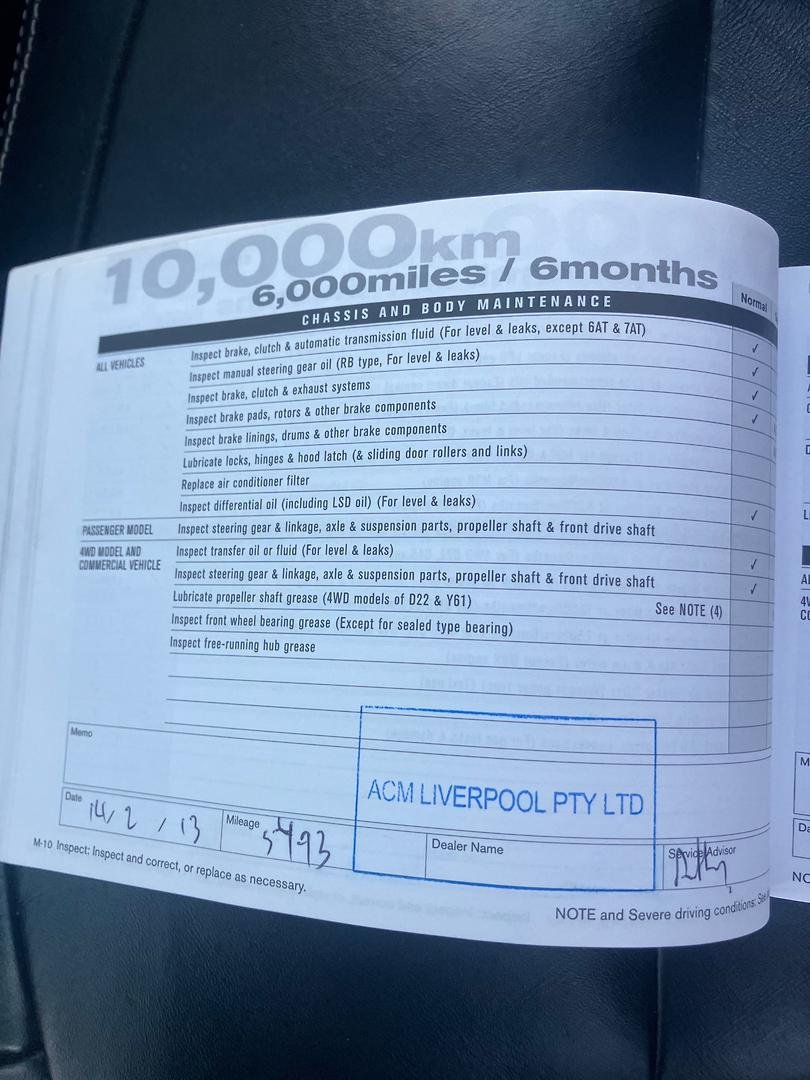 10,000km
6,000miles / 6months
CHASSIS AND BODY MAINTENANCE
Normal
ALL VEHICLES
Inspect brake, clutch & automatic transmission fluid (For level & leaks, except 6AT & 7AT) ✓
Inspect manual steering gear oil (RB type, For level & leaks) ✓
Inspect brake, clutch & exhaust systems ✓
Inspect brake pads, rotors & other brake components ✓
Inspect brake linings, drums & other brake components
Lubricate locks, hinges & hood latch (& sliding door rollers and links)
Replace air conditioner filter
Inspect differential oil (including LSD oil) (For level & leaks) ✓
PASSENGER MODEL
Inspect steering gear & linkage, axle & suspension parts, propeller shaft & front drive shaft
4WD MODEL AND
COMMERCIAL VEHICLE
Inspect transfer oil or fluid (For level & leaks) ✓
Inspect steering gear & linkage, axle & suspension parts, propeller shaft & front drive shaft ✓
Lubricate propeller shaft grease (4WD models of D22 & Y61) See NOTE (4)
Inspect front wheel bearing grease (Except for sealed type bearing)
Inspect free-running hub grease
Memo
ACM LIVERPOOL PTY LTD
Date 14/2/13
Mileage 5493
Dealer Name
Service Advisor
M-10 Inspect: Inspect and correct, or replace as necessary.
NOTE and Severe driving conditions: See